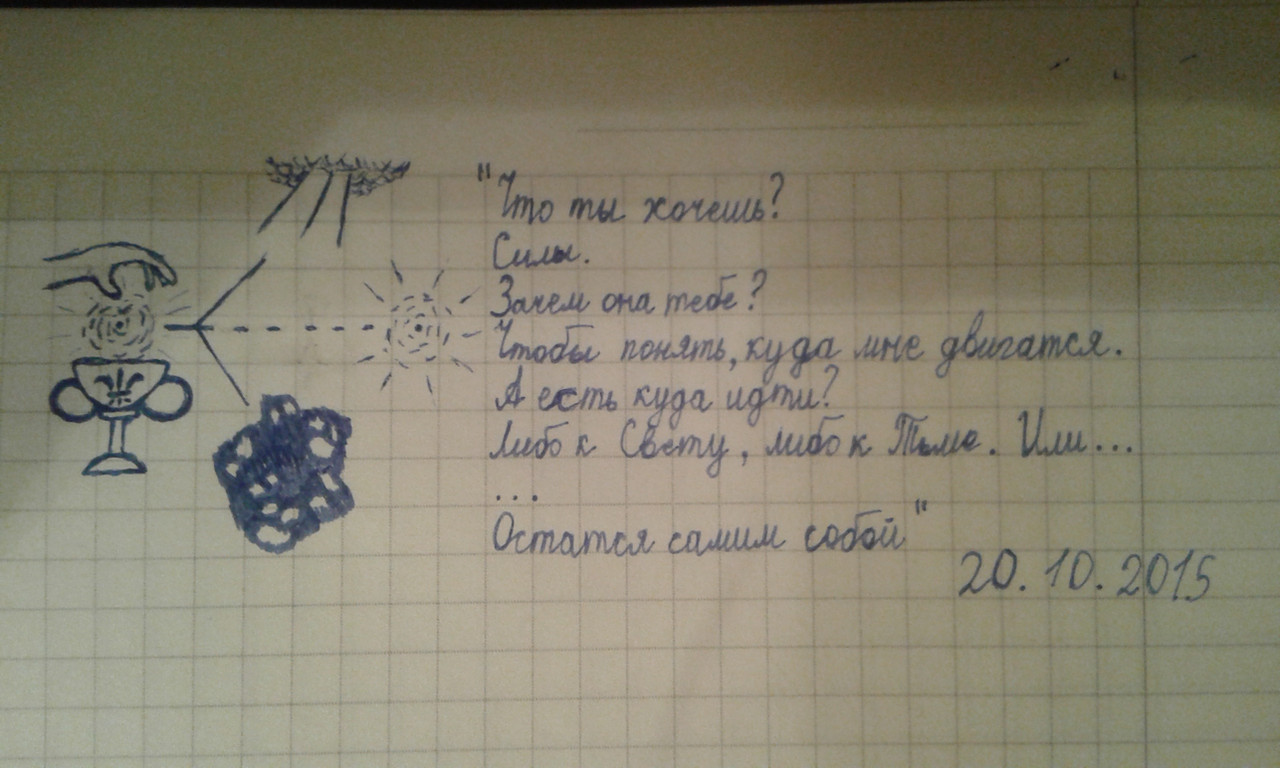 "Что ты хочешь?
Силы.
Зачем она тебе?
Чтобы понять, куда мне двигатся.
А есть куда идти?
Либо к Свету, либо к Тьме. Или...
...
Остатся самим собой"
20.10.2015